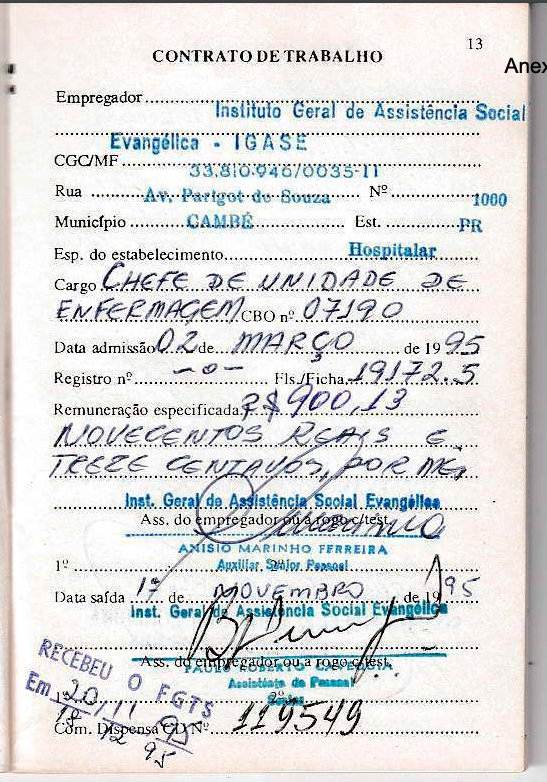 13
CONTRATO DE TRABALHO
Anex
Empregador
Instituto Geral de Assistência Social
Evangélica - IGASE
CGC/MF 33.810.946/0035-11
Rua Av. Parigot de Souza Nº 1000
Município CAMBÉ Est. PR
Esp. do estabelecimento Hospitalar
Cargo CHEFE DE UNIDADE DE
ENFERMAGEM CBO nº 07190
Data admissão 02 de MARÇO de 1995
Registro nº -o- Fls./Ficha 19172.5
Remuneração especificada R$ 900,13
NOVECENTOS REAIS E
TREZE CENTAVOS, POR MÊS
Inst. Geral de Assistência Social Evangélica
Ass. do empregador ou a rogo c/test.
ANISIO MARINHO FERREIRA
1º 2º
Auxiliar Sênior Pessoal
Data saída 17 de NOVEMBRO de 1995
Inst. Geral de Assistência Social Evangélica
Ass. do empregador ou a rogo c/test.
PAULO ROBERTO
Assistente de Pessoal
1º 2º
RECEBEU O FGTS
Em 20/11/95
18/12/95
Com. Dispensa CD Nº 119549